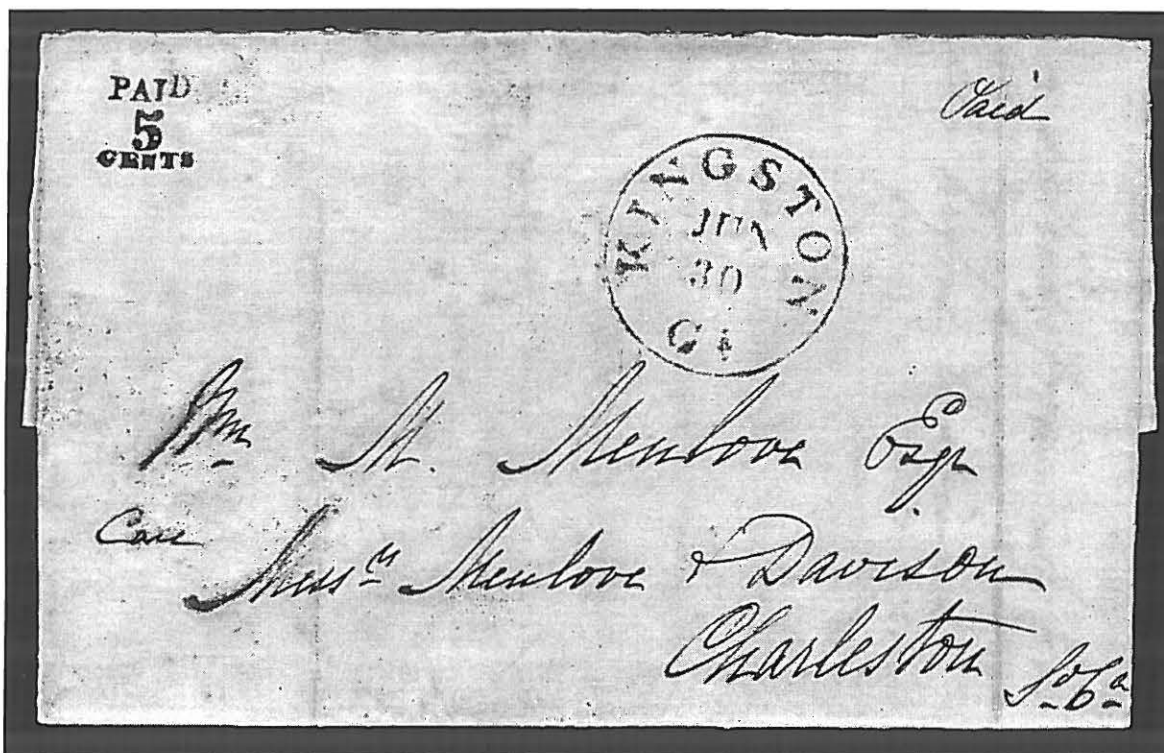 PAID
5
CENTS
Paid
KINGSTON
JUN
30
GA
Wm M. Menlove Esqr
Care Messrs Menlove & Davison
Charleston So Ca